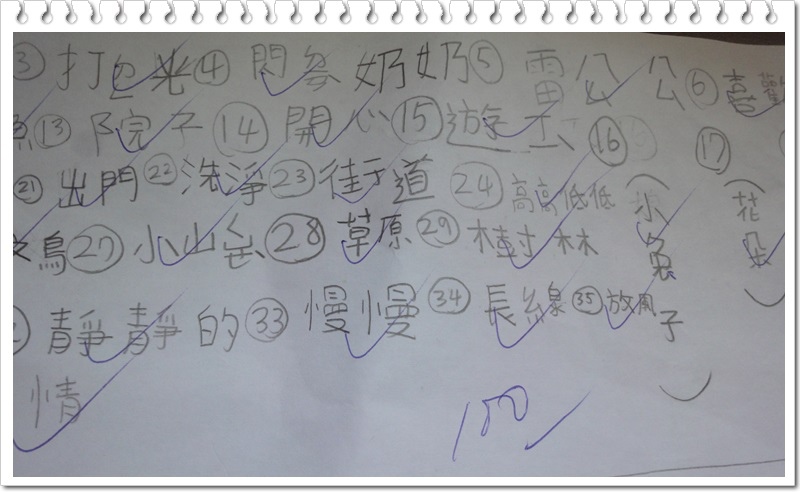 ③ 打 ④ 閃 奶奶 ⑤ 雷公公 ⑥ 喜歡
⑬ 院子 ⑭ 開心 ⑮ 遊 ⑯ ⑰
㉑ 出門 ㉒ 洗淨 ㉓ 街道 ㉔ 高高低低
(小兔子)
(花朵)
鳥 ㉗ 小山 ㉘ 草原 ㉙ 樹林
靜靜的 ㉝ 慢慢 ㉞ 長線 ㉟ 放風
情
100